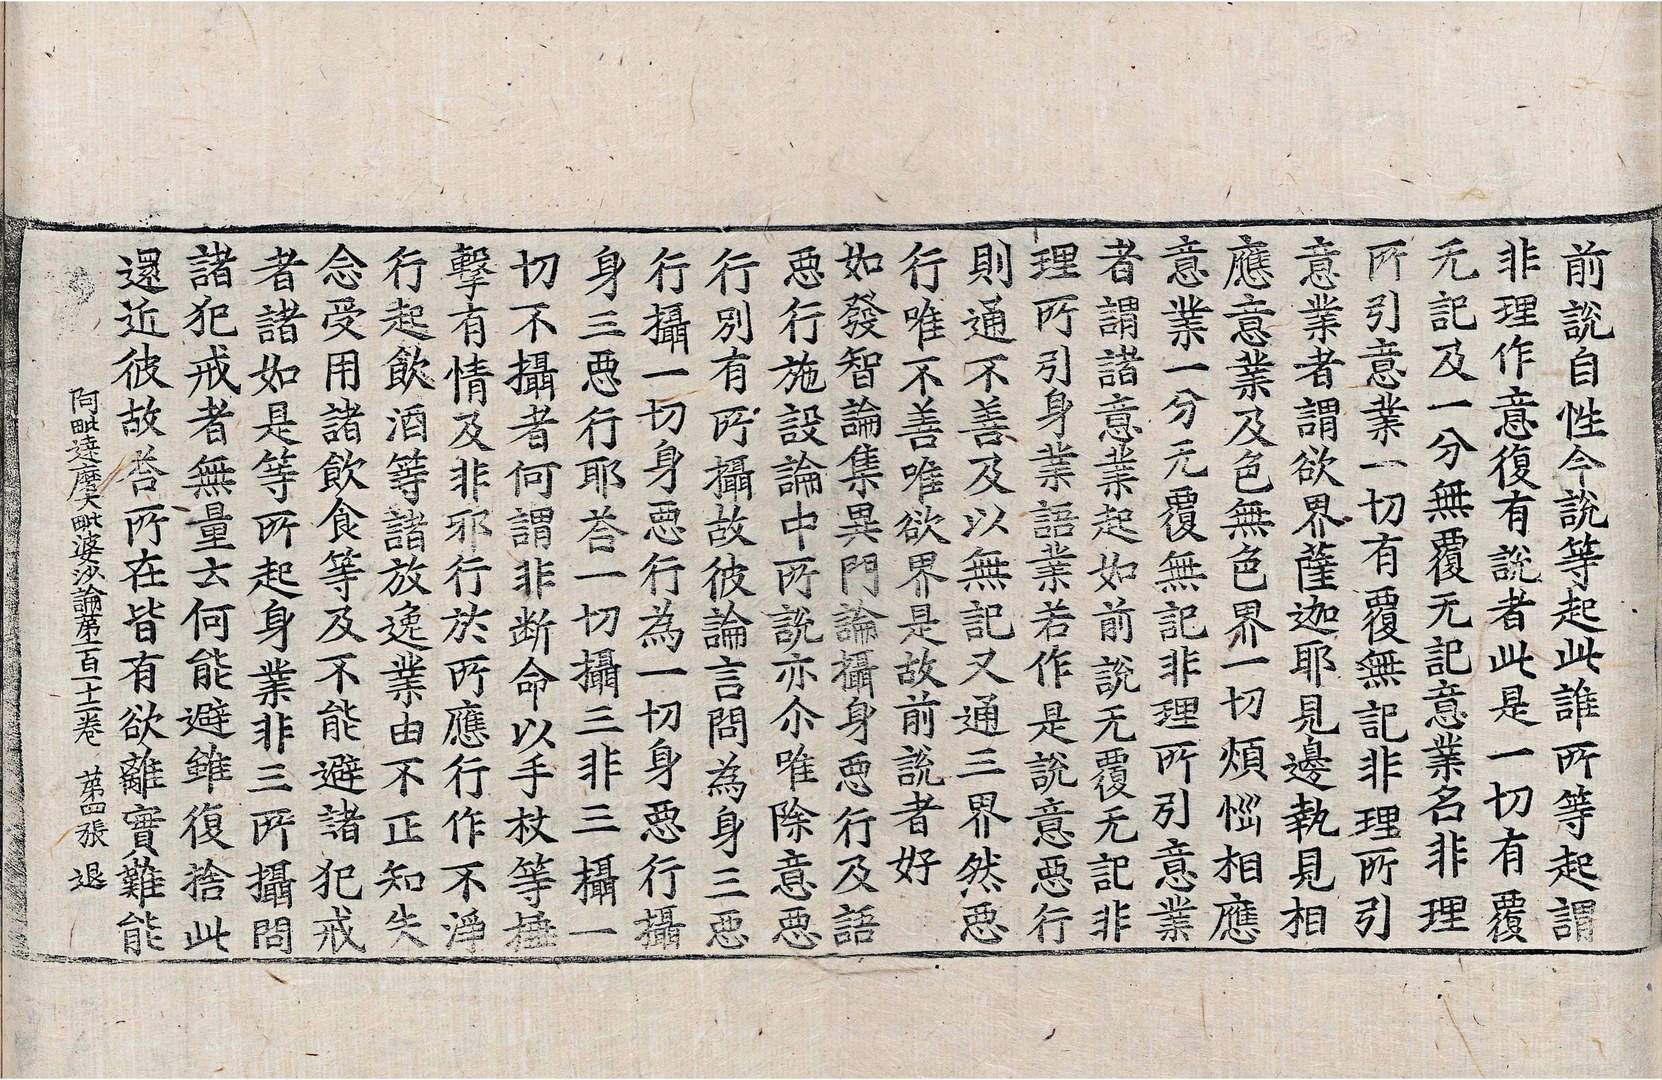 前說自性今說等起此誰所等起謂
非理作意復有說者此是一切有覆
无記及一分無覆无記意業名非理
所引意業一切有覆無記非理所引
意業者謂欲界薩迦耶見邊執見相
應意業及色無色界一切煩惱相應
意業一分无覆無記非理所引意業
者謂諸意業起如前說无覆无記非
理所引身業語業若作是說意惡行
則通不善及以無記又通三界然惡
行唯不善唯欲界是故前說者好
如發智論集異門論攝身惡行及語
惡行施設論中所說亦尒唯除意惡
行別有所攝故彼論言問為身三惡
行攝一切身惡行為一切身惡行攝
身三惡行耶荅一切攝三非三攝一
切不攝者何謂非断命以手杖等捶
擊有情及非邪行於所應行作不淨
行起飲酒等諸放逸業由不正知失
念受用諸飲食等及不能避諸犯戒
者諸如是等所起身業非三所攝問
諸犯戒者無量云何能避雖復捨此
還近彼故荅所在皆有欲離實難能
阿毗達磨大毗婆沙論第一百一十二卷 第四張 退